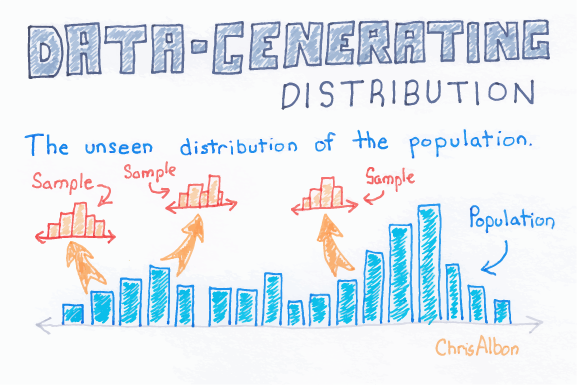 DATA-GENERATING
DISTRIBUTION
The unseen distribution of the population.
Sample
Sample
Sample
Population
ChrisAlbon